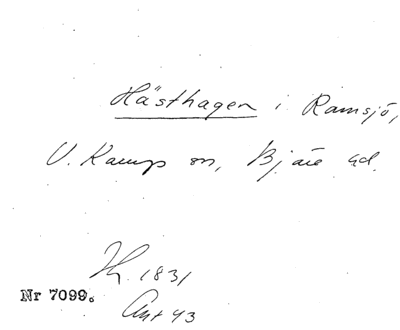 Hästhagen i Ramsjö,
V. Karup sn, Bjäre hd.
1831
Nr 7099.
Ant 43